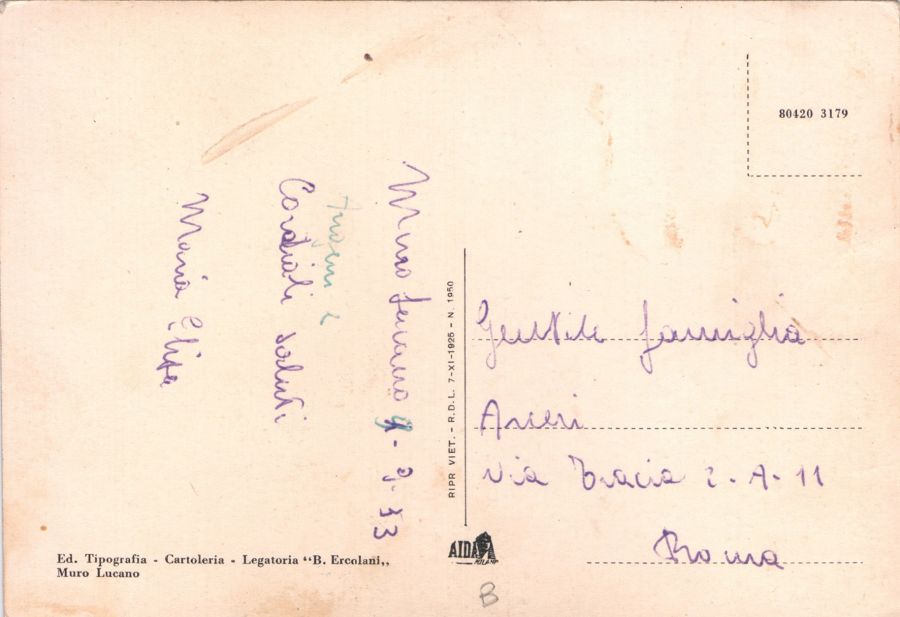 Muro Lucano 9-9-73
Auguri e
Cordiali saluti
Maria Elisa
Ed. Tipografia - Cartoleria - Legatoria "B. Ercolani,,
Muro Lucano
RIPR VIET. - R.D.L. 7-XI-1925 - N. 1950
AIDA
MILANO
80420 3179
Gentile famiglia
Arceri
Via Tracia 2-A-11
Roma
B